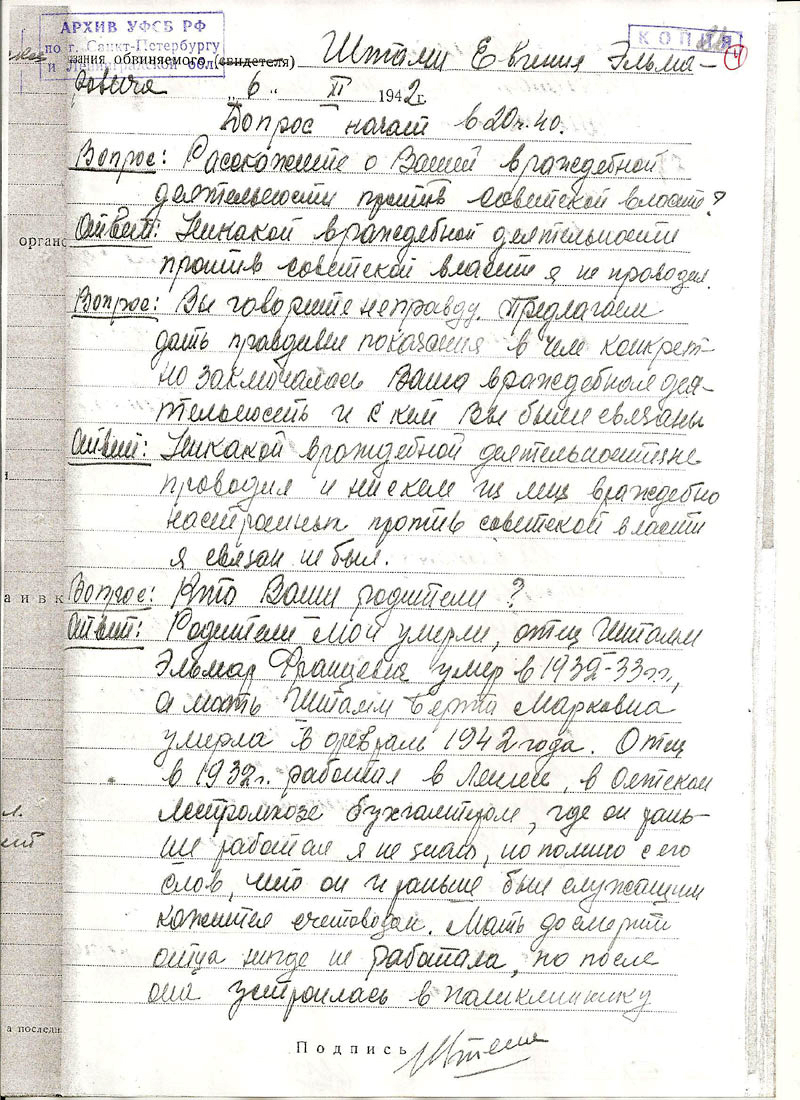 АРХИВ УФСБ РФ
по г. Санкт-Петербургу
и Ленинградской обл.
КОПИЯ
4
зания обвиняемого (свидетеля) Штамм Евгения Эльма-
ровича
„6“ XI 1942г.
Допрос начат в 20ч.40.
Вопрос: Расскажите о Вашей враждебной
деятельности против советской власти?
Ответ: Никакой враждебной деятельности
против советской власти я не проводил.
Вопрос: Вы говорите неправду. Предлагаем
дать правдивые показания в чем конкрет-
но заключалась Ваша враждебная дея-
тельность и с кем Вы были связаны
Ответ: Никакой враждебной деятельности не
проводил и ни с кем из лиц враждебно
настроенных против советской власти
я связан не был.
Вопрос: Кто Ваши родители?
Ответ: Родители мои умерли, отец Штамм
Эльмар Францевич умер в 1932-33гг,
а мать Штамм Берта Марковна
умерла в феврале 1942 года. Отец
в 1932г. работал в в
бухгалтером, где он рань-
ше работал я не знаю, но помню с его
слов, что он и раньше был служащим
кажется счетоводом. Мать до смерти
отца нигде не работала, но после
она устроилась в поликлинику
Подпись Штамм
органо
аивк
а последн